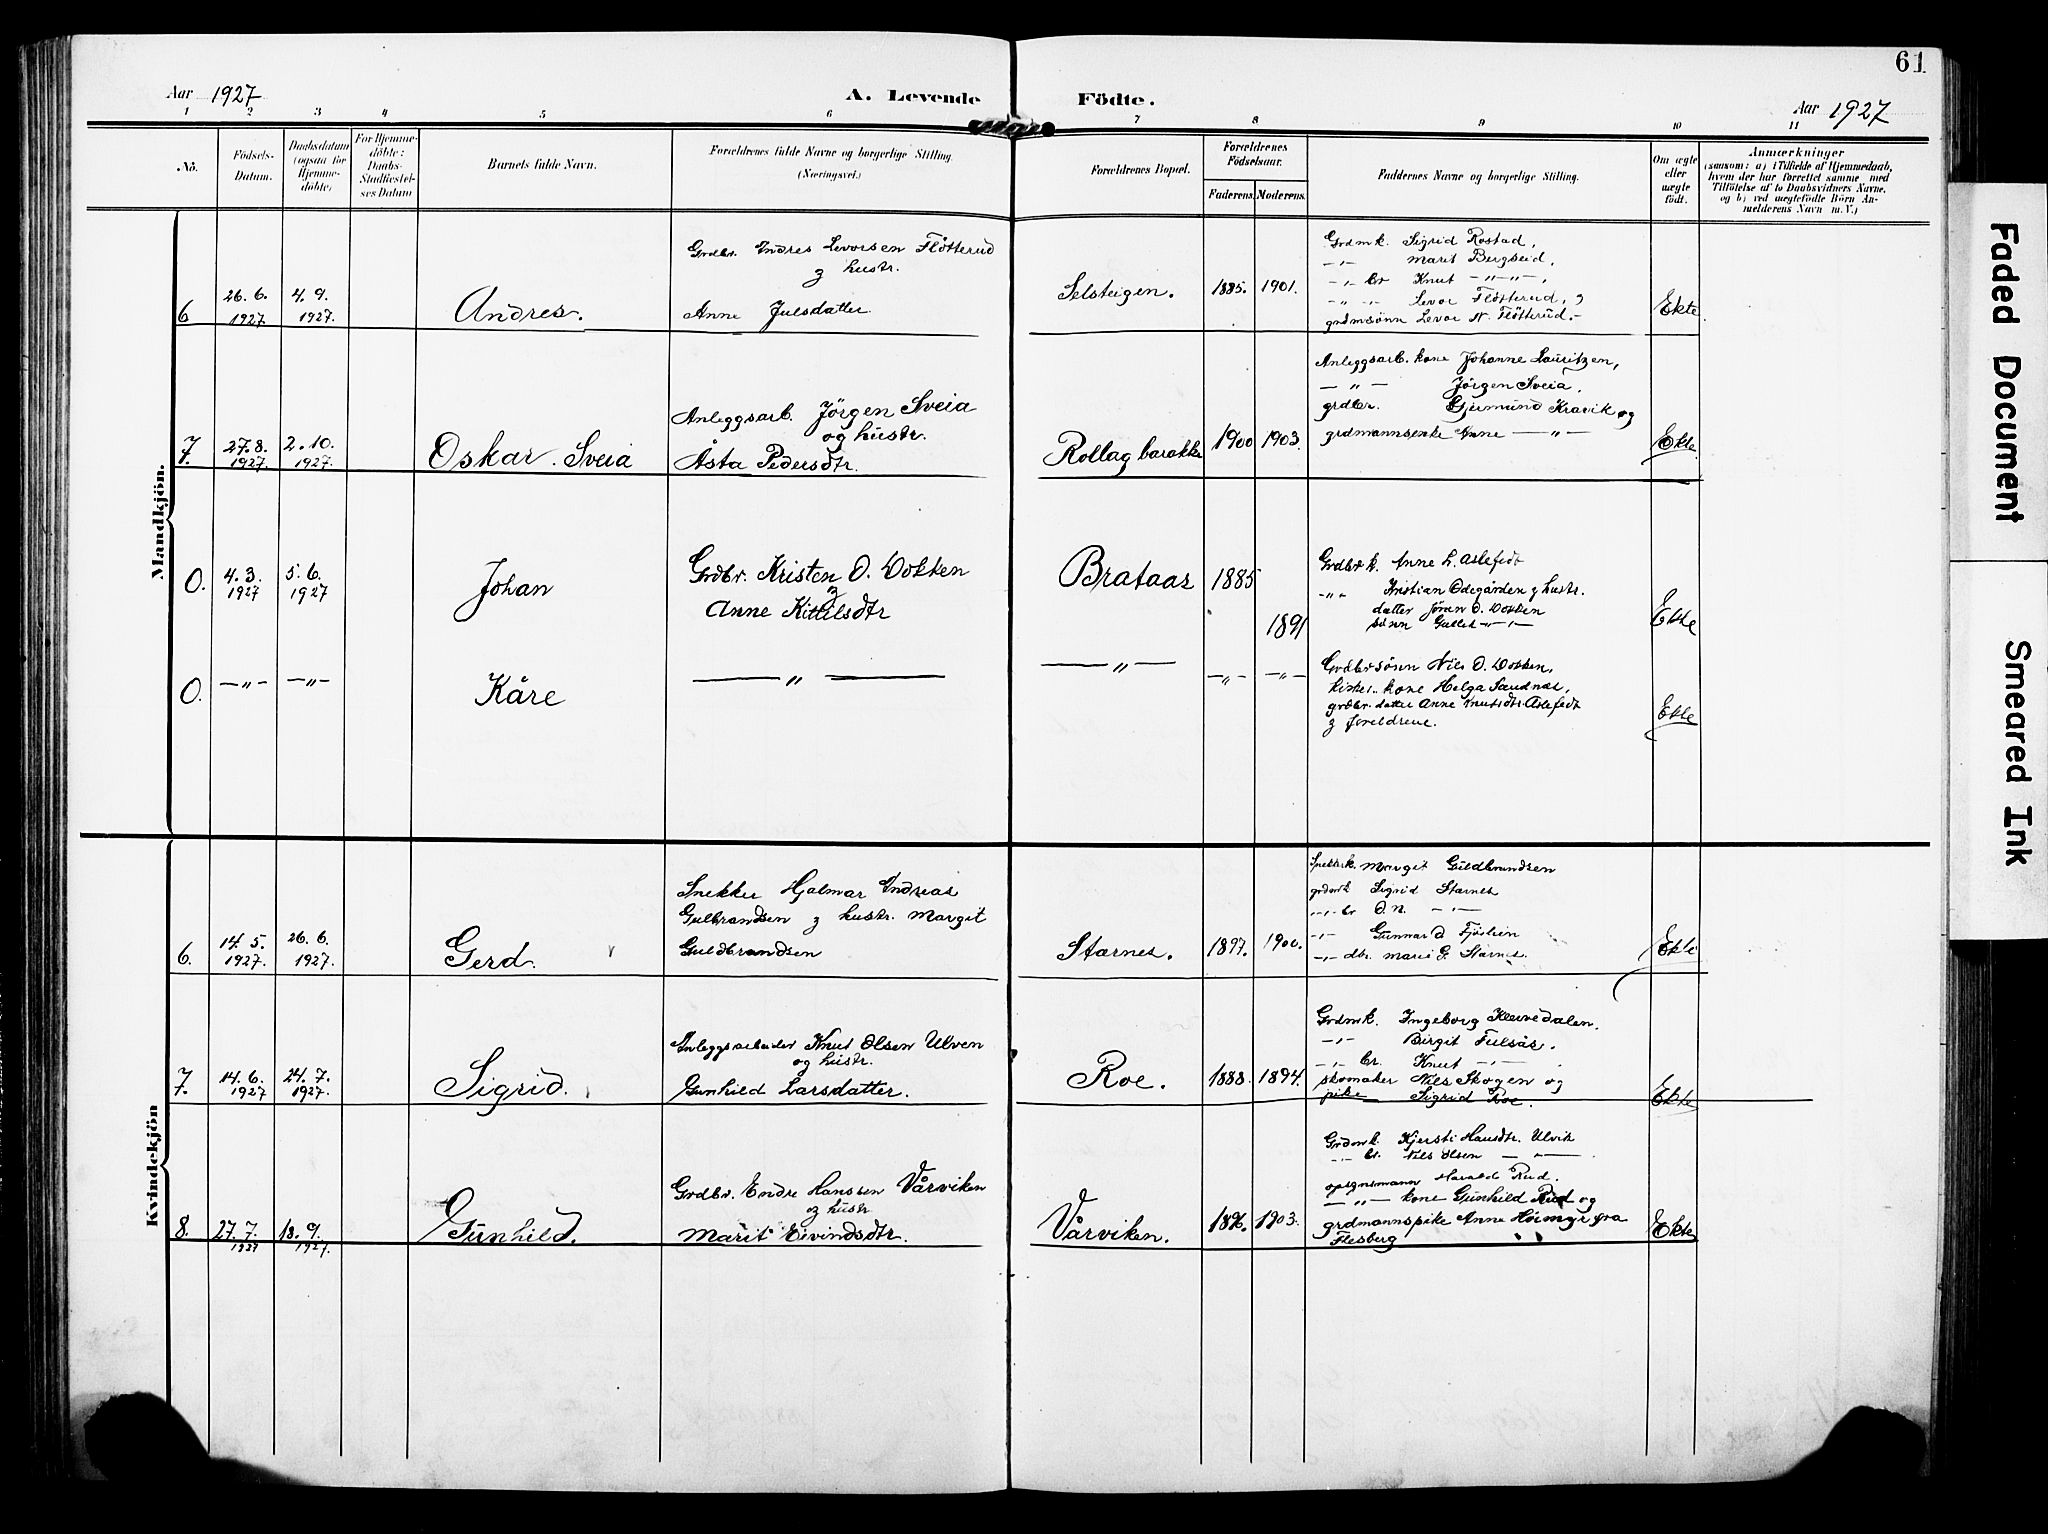 61
Aar 1927
A. Levende Födte.
Aar 1927
1 2 3 4 5 6 7 8 9 10 11
No.
Födsels-
Datum.
Daabsdatum
(ogsaa for
Hjemme-
döbte)
For Hjemme-
döbte:
Daabs-
Stadfæstel-
ses Datum
Barnets fulde Navn.
Forældrenes fulde Navne og borgerlige Stilling.
(Næringsvei.)
Forældrenes Bopæl.
Forældrenes
Födselsaar.
Faderens. Moderens.
Faddernes Navne og borgerlige Stilling.
Om ægte
eller
uægte
födt.
Anmærkninger
(saasom: a) i Tilfælde af Hjemmedaab,
hvem der har forrettet samme med
Tilföielse af to Daabsvidners Navne,
og b) ved uægtefödte Börn An-
melderens Navn m.V.)
Mandkjön.
6 26. 6. 1927 4. 9. 1927. Andres.
Grdbr. Andres Levorsen Flötterud
& hustr.
Anne Julsdatter
Selsteigen. 1885. 1901.
Grdmk. Sigrid Rostad,
-"- Marit Bergseid,
-"- br Knut -"-"-,
-"- "- Levor Flötterud, &
grdmsönn Levor N. Flötterud.-
Ekte
7. 27. 8. 1927. 2. 10. 1927. Oskar. Sveia
Anleggsarb. Jörgen Sveia
og hustr.
Åsta Pedersdtr.
Rollag barakke 1900 1903.
Anleggsarb. kone Johanne Lauritzen,
— " — Jörgen Sveia,
grdbr. Gjermund Kravik og
grdmannsenke Anne — " —
Ekte
0. 4. 3. 1927 5. 6. 1927 Johan
Grdbr. Kristen O. Vokken
&
Anne Kittilsdtr
Brataas 1885 1891
Grdbr k. Anne L. Aslefedt
-"- Kristian Ödegården & hustr.
datter Jöran O. Vokken
sönn Gullek -"-
Ekte
0. -"- -"- Kåre — " — — " — -"- -"-
Grdbr sönn Nils O. Vokken,
kone Helga Sandnæs,
grdbr. datter Anne Knutsdtr. Aslefedt
& foreldrene.
Ekte
Kvindekjön
6. 14. 5. 1927. 26. 6. 1927. Gerd.
Snekker Hjalmar Andreas
Gulbrandsen & hustr. Margit
Guldbrandsen
Starnes. 1897. 1900.
Snekkerk. Margit Guldbrandsen
grdmk Sigrid Starnes
-"- br O. N. -"-
-"- Gunnar O Fjöslien
-"- dtr. Mari G. Starnes.
Ekte
7. 14. 6. 1927 24. 7. 1927. Sigrid.
Anleggsarbeider Knut Olsen Ulven
og hustr.
Gunhild Larsdatter.
Roe. 1888. 1894.
Grdmk. Ingeborg Klevedalen.
-"- Birgit Fulsås.
-"- br. Knut -"-
skomaker Nils Skogen og
pike Sigrid Roe.
Ekte
8. 27. 7. 1927 18. 9. 1927. Gunhild.
Grdbr. Endre Hanssen Vårviken
og hustr
Marit Eivindsdtr.
Vårviken. 1896. 1903.
Grdmk. Kjersti Hansdtr. Ulvik
-"- br. Nils Olsen — " —
opsynsmann Harald Rud.
— " — kone Gunhild Rud og
grdmannspike Anne Höimyr fra
Flesberg
Ekte
Faded Document
Smeared Ink